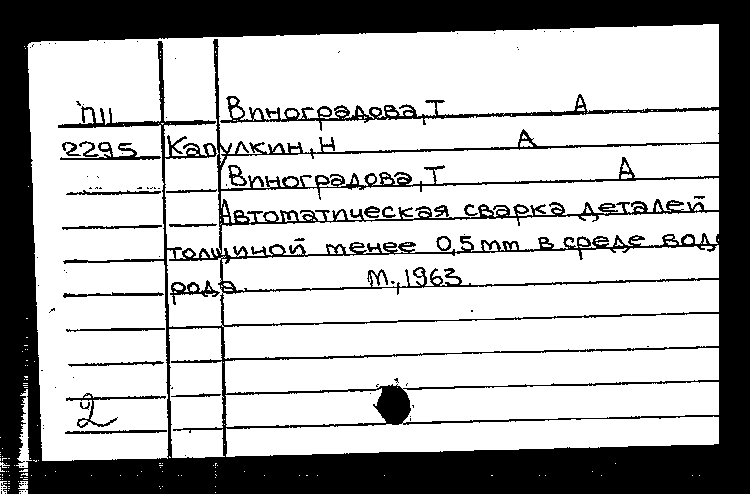 П11 Виноградова,Т А
2295 Капулкин,Н А
Виноградова,Т А
Автоматическая сварка деталей
толщиной менее 0,5мм в среде водо
рода. М.,1963.
2